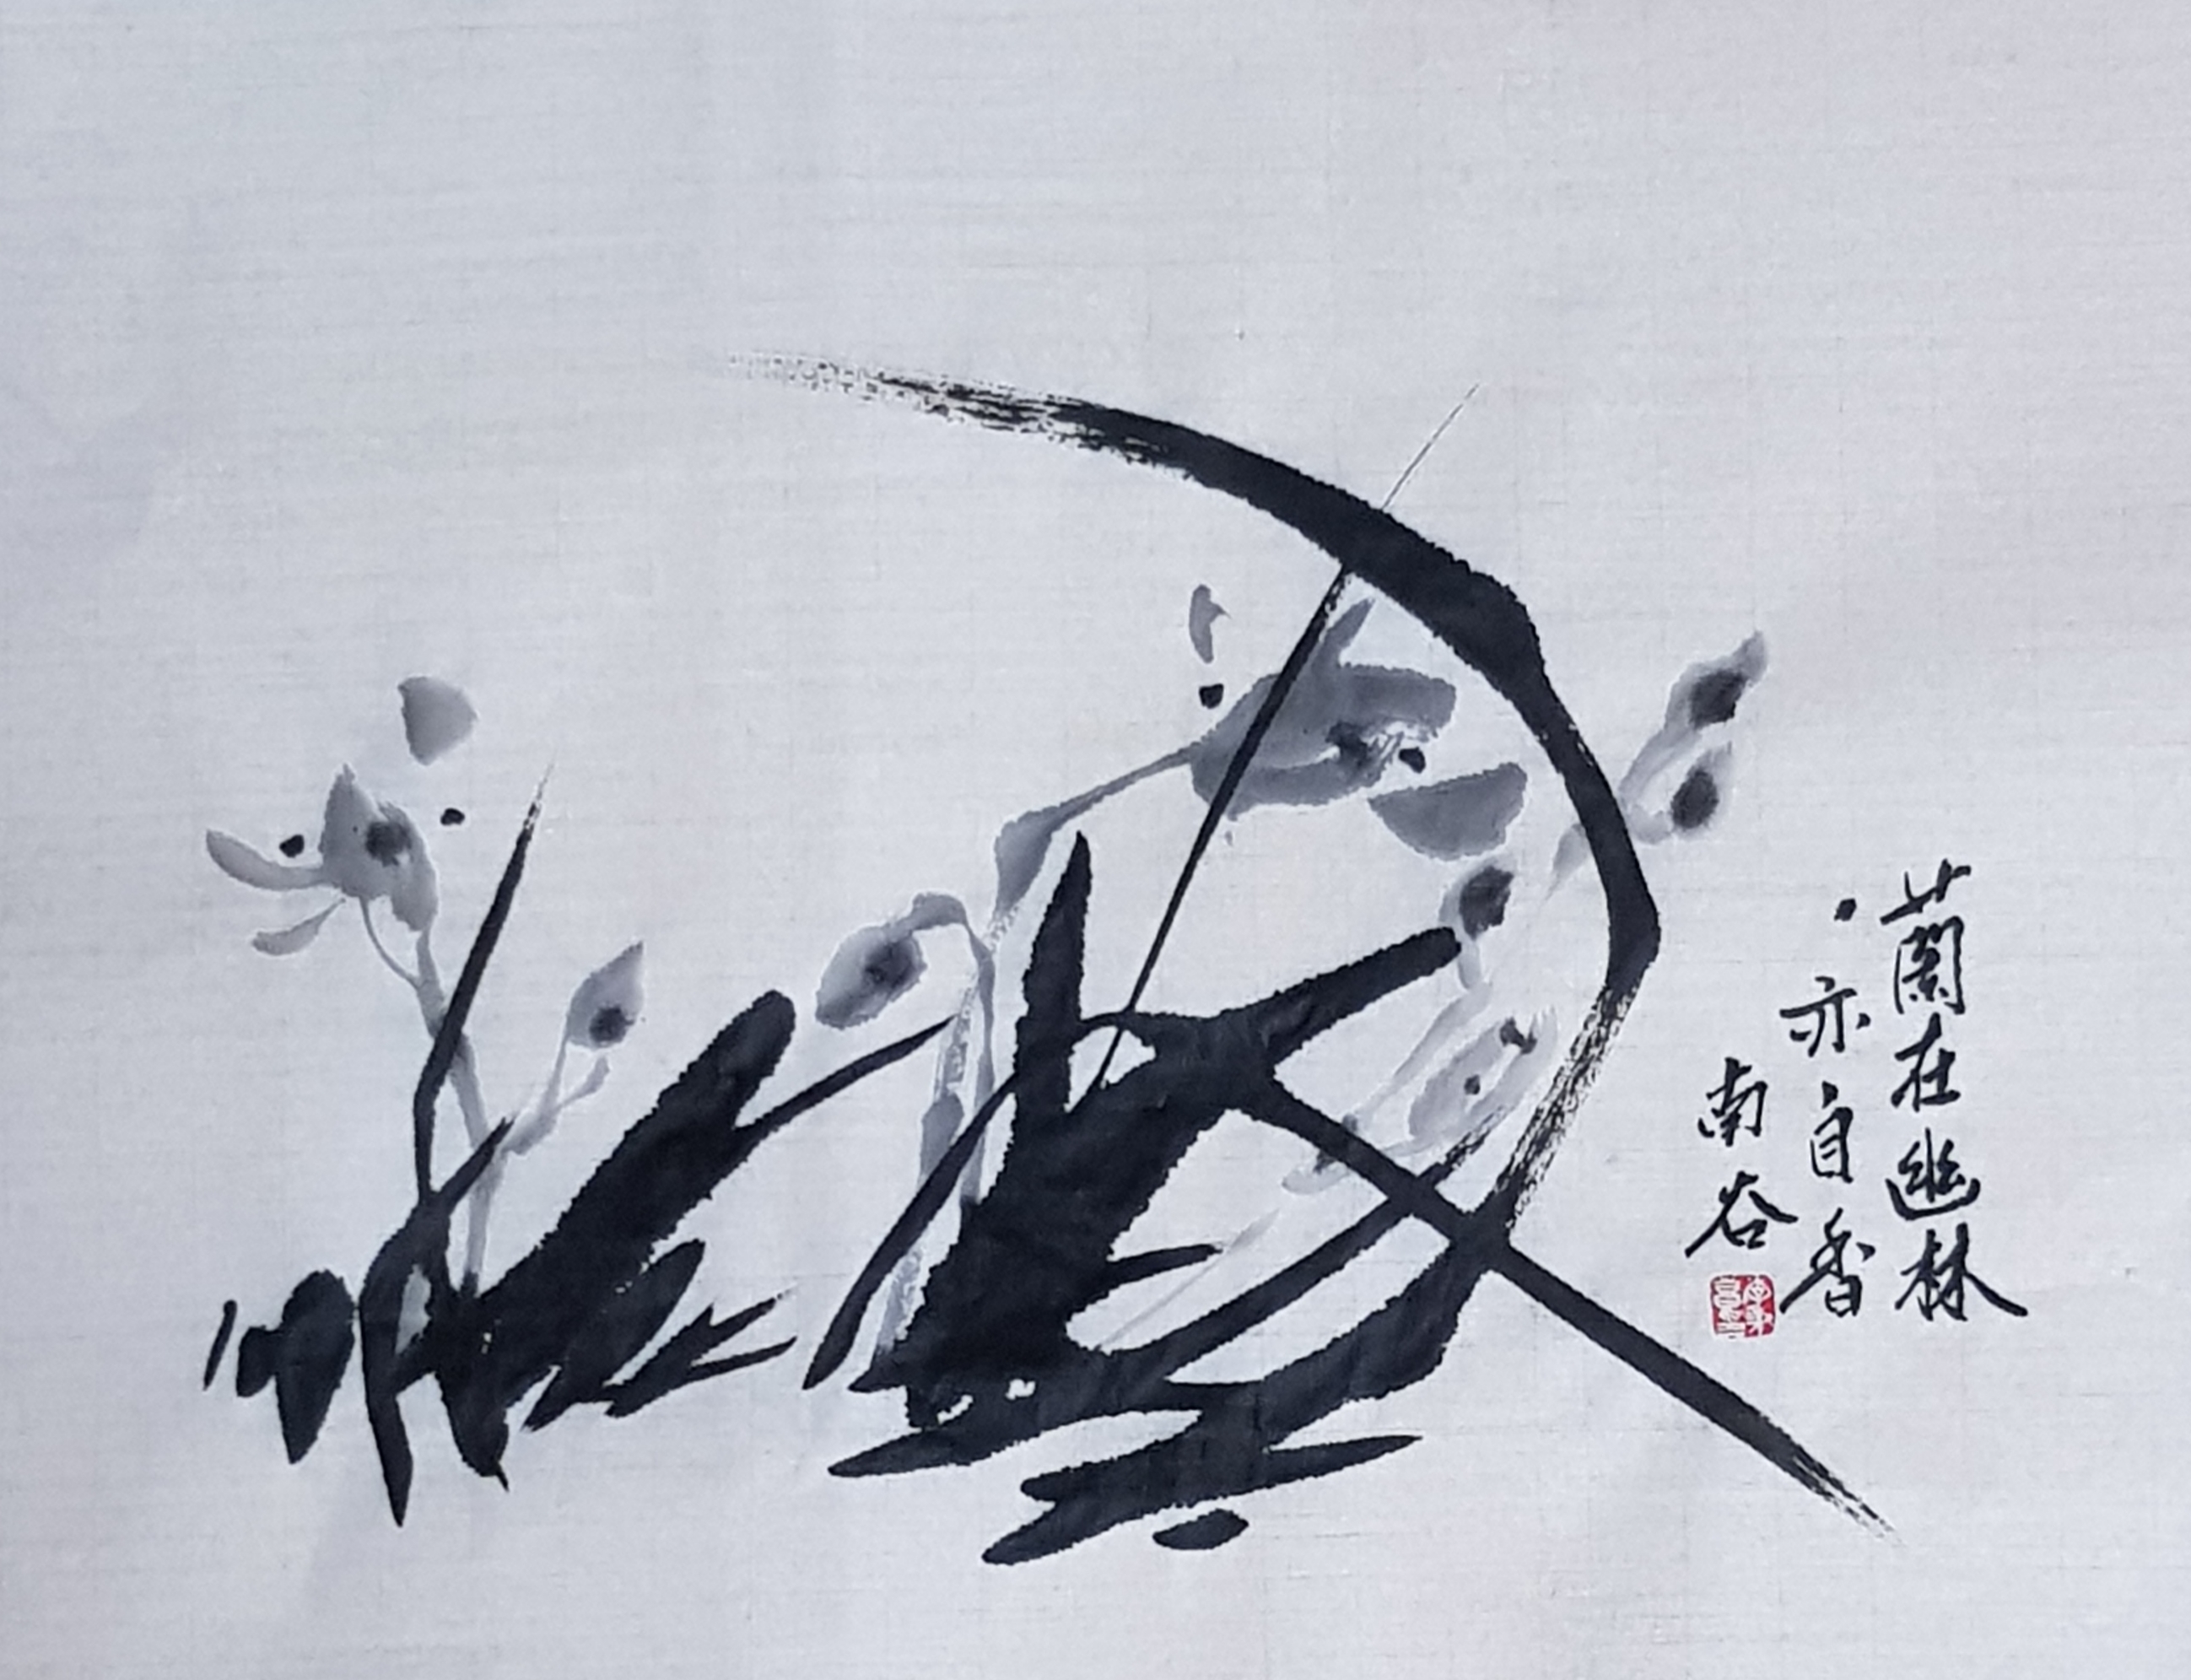 蘭在幽林
亦自香
南谷